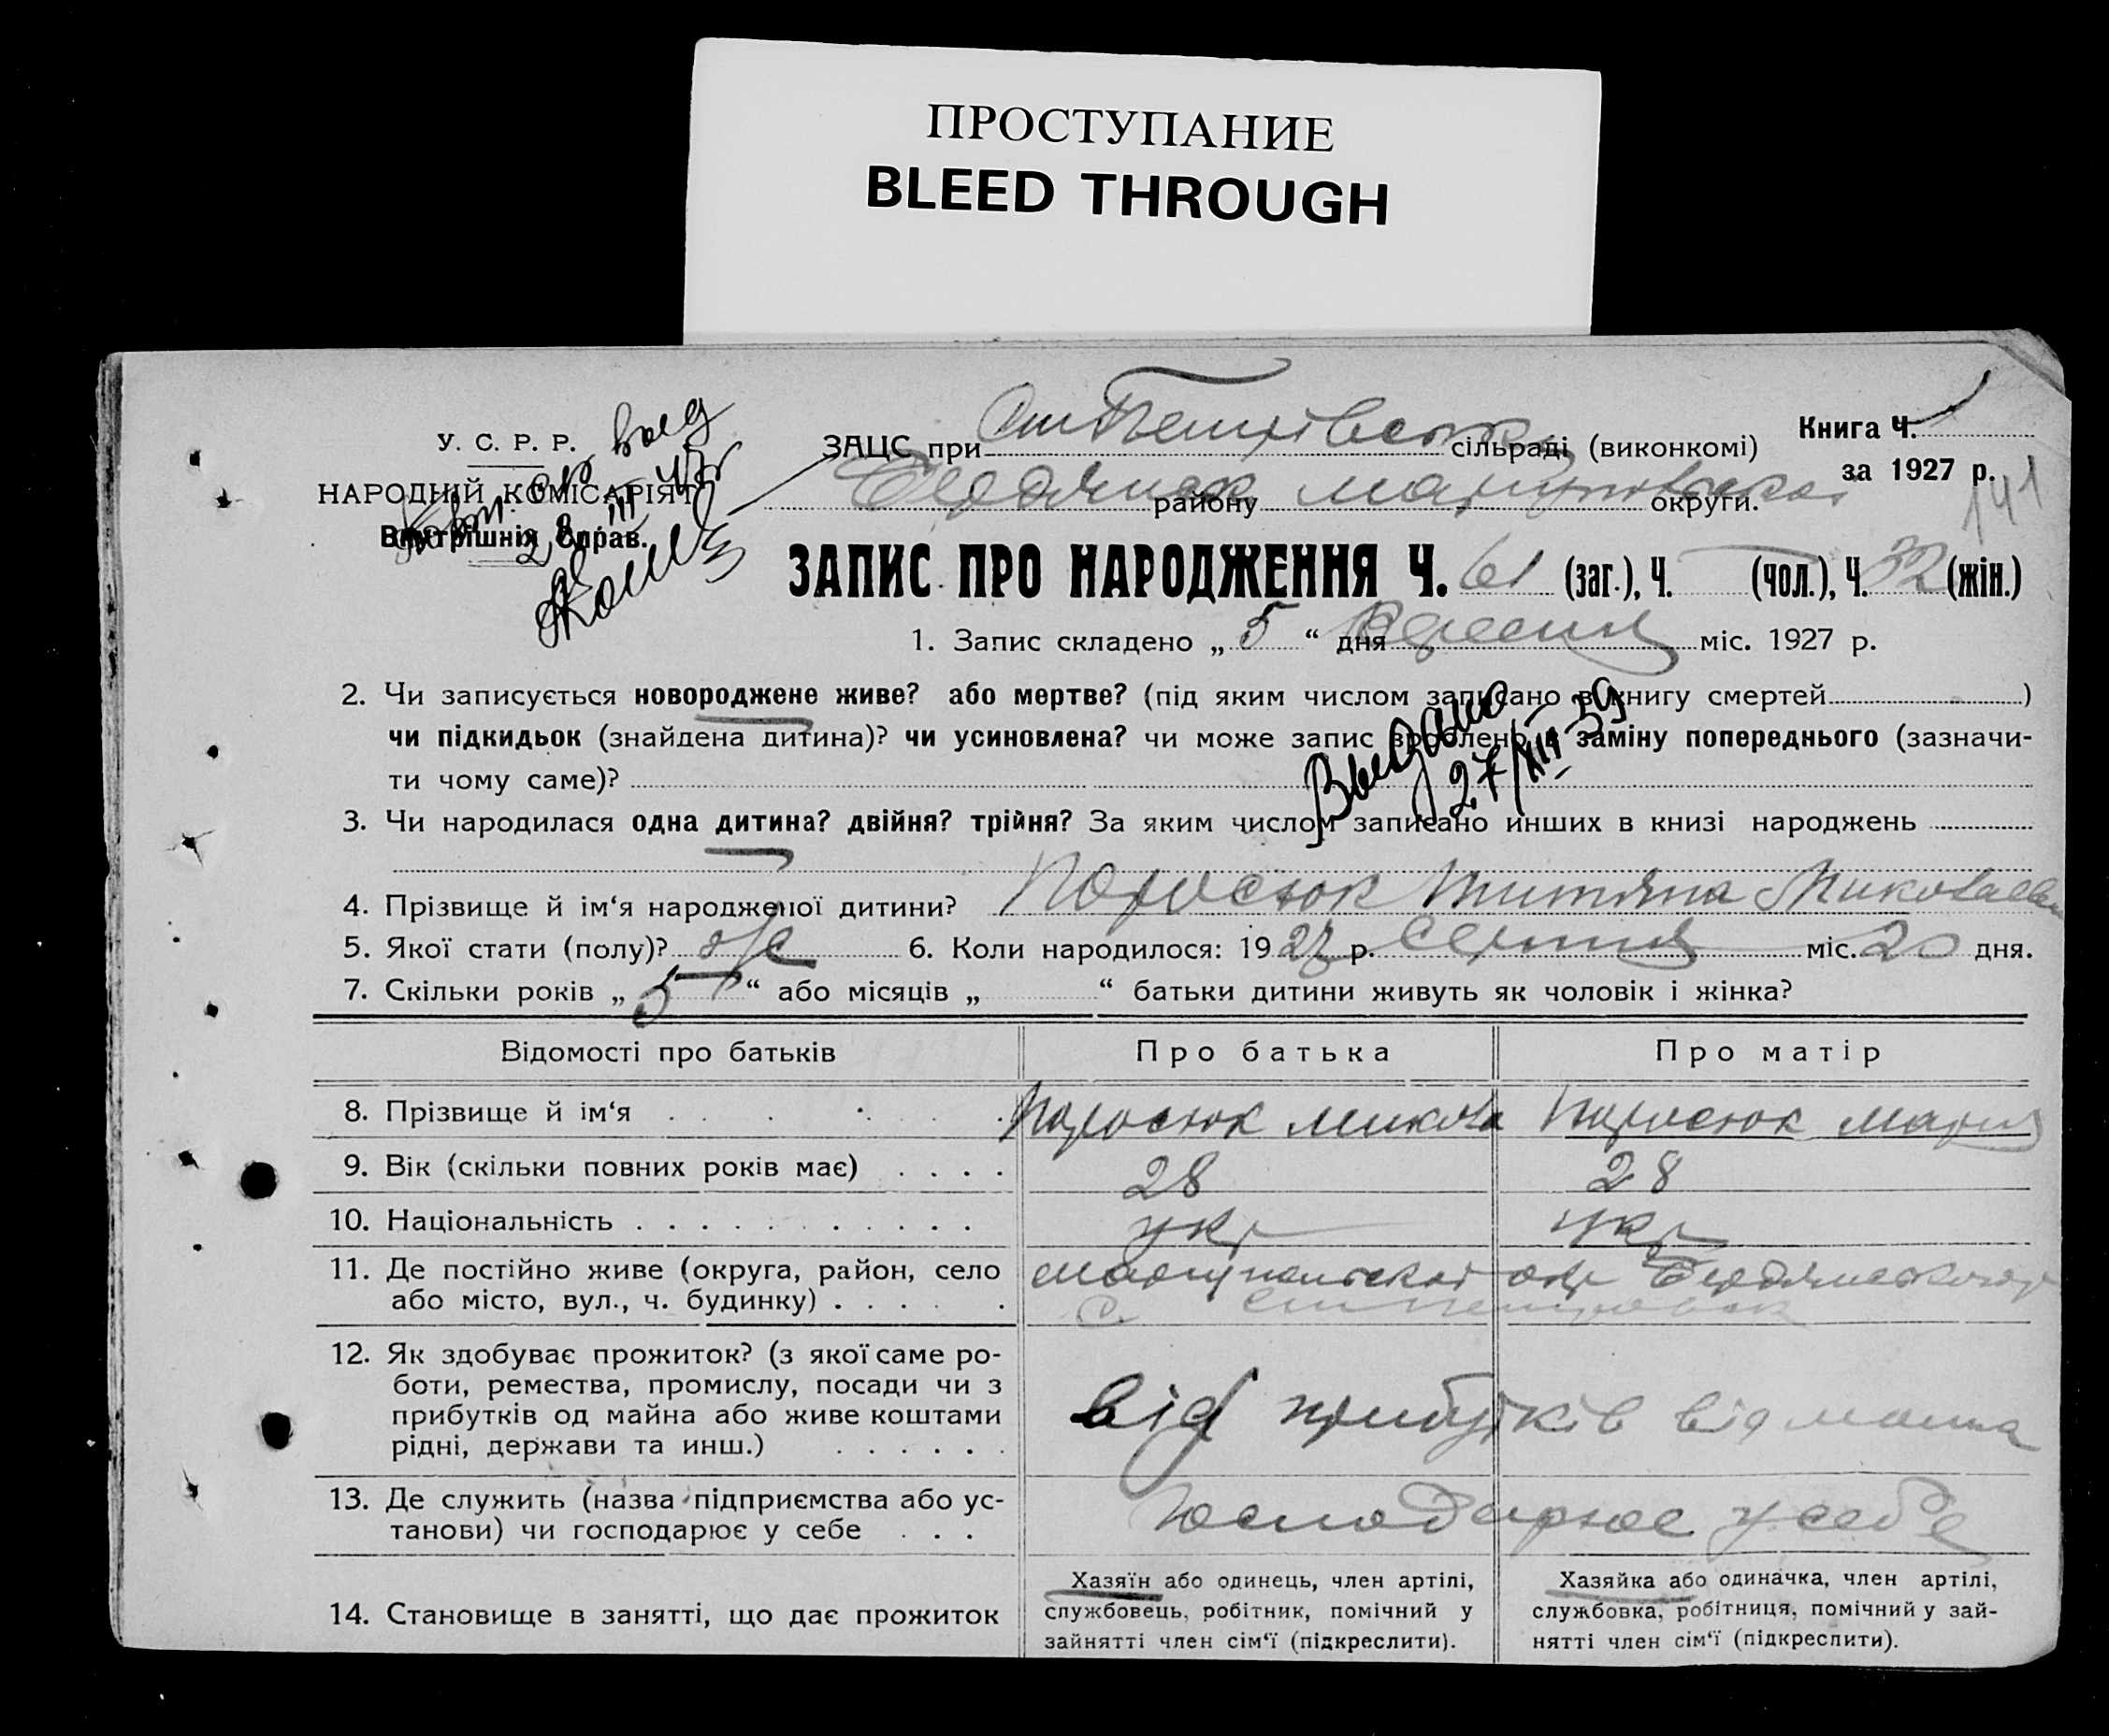 ПРОСТУПАНИЕ
BLEED THROUGH
У. С. Р. Р.
НАРОДНІЙ КОМІСАРІЯТ
Внутрішніх Справ.
ЗАЦС при сільраді (виконкомі)
району округи.
Книга Ч. 1
за 1927 р.
141
ЗАПИС ПРО НАРОДЖЕННЯ Ч. 61 (заг.), Ч. (чол.), Ч. 32 (жін.)
1. Запис складено „ 5 “ дня Вересня міс. 1927 р.
2. Чи записується новороджене живе? або мертве? (під яким числом записано в книгу смертей )
чи підкидьок (знайдена дитина)? чи усиновлена? чи може запис зроблено в заміну попереднього (зазначи-
ти чому саме)?
Выдано
27/XII-39
3. Чи народилася одна дитина? двійня? трійня? За яким числом записано инших в книзі народжень
4. Прізвище й ім‘я народженої дитини?
5. Якої стати (полу)? ж 6. Коли народилося: 1927 р. Серпня міс. 20 дня.
7. Скільки років „ 5 “ або місяців „ “ батьки дитини живуть як чоловік і жінка?
Відомості про батьків Про батька Про матір
8. Прізвище й ім‘я Микола Мария
9. Вік (скільки повних років має) 28 28
10. Національність укр укр
11. Де постійно живе (округа, район, село
або місто, вул., ч. будинку)
12. Як здобуває прожиток? (з якої саме ро-
боти, ремества, промислу, посади чи з
прибутків од майна або живе коштами
рідні, держави та инш.)
від прибутків від майна
13. Де служить (назва підприємства або ус-
танови) чи господарює у себе
Господарює у себе
14. Становище в занятті, що дає прожиток
Хазяїн або одинець, член артілі,
службовець, робітник, помічний у
зайнятті член сім‘ї (підкреслити).
Хазяйка або одиначка, член артілі,
службовка, робітниця, помічний у зай-
нятті член сім‘ї (підкреслити).